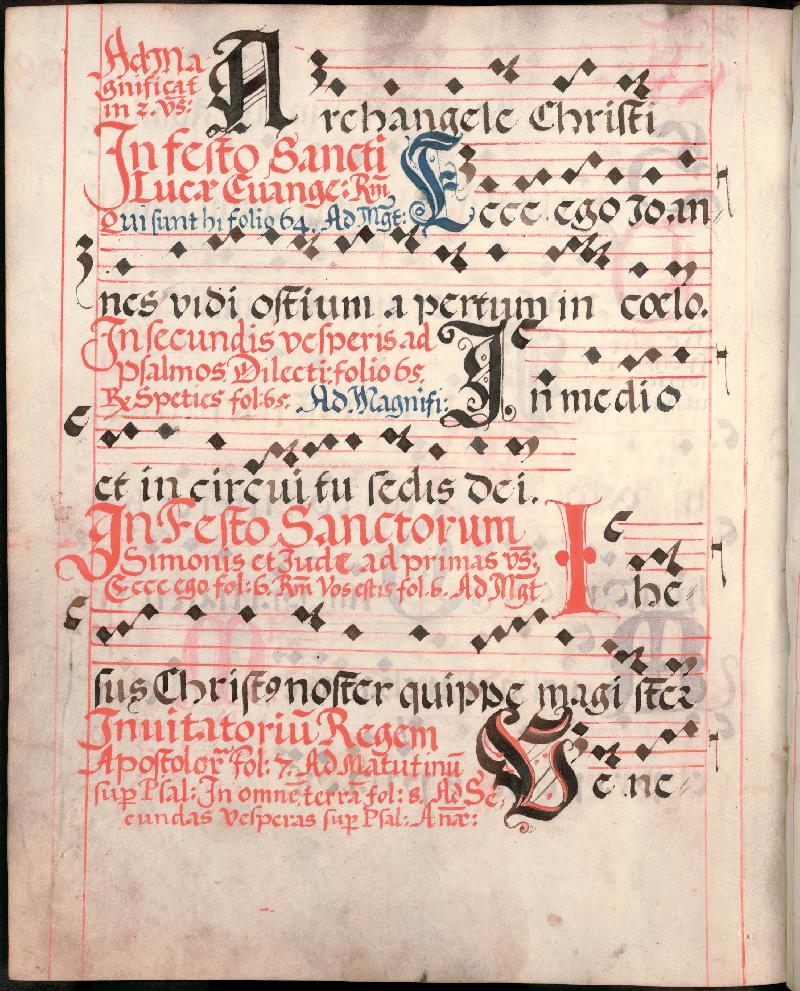 Ad Ma
gnificat
in 2. vs:
Archangele Christi
In festo Sancti
Lucæ Euange: Rm
Qui sunt hi folio 64. Ad Mgt:
Ecce ego Ioan
nes vidi ostium apertum in cœlo.
In secundis vesperis ad
Psalmos Dilecti: folio 65.
Species fol: 65. Ad Magnifi:
In medio
et in circuitu sedis dei.
In Festo Sanctorum
Simonis et Iude ad primas vs:
Ecce ego fol: 6. Rm Vos estis fol. 6. Ad Mgt.
Ihe
sus Christ9 noster quippe magister
Inuitatoriũ Regem
Apostolor fol: 7. Ad Matutinũ
sup Psal: In omnẽ terrã fol: 8. Ad Se
cundas vesperas sup Psal: Anæ:
Vene